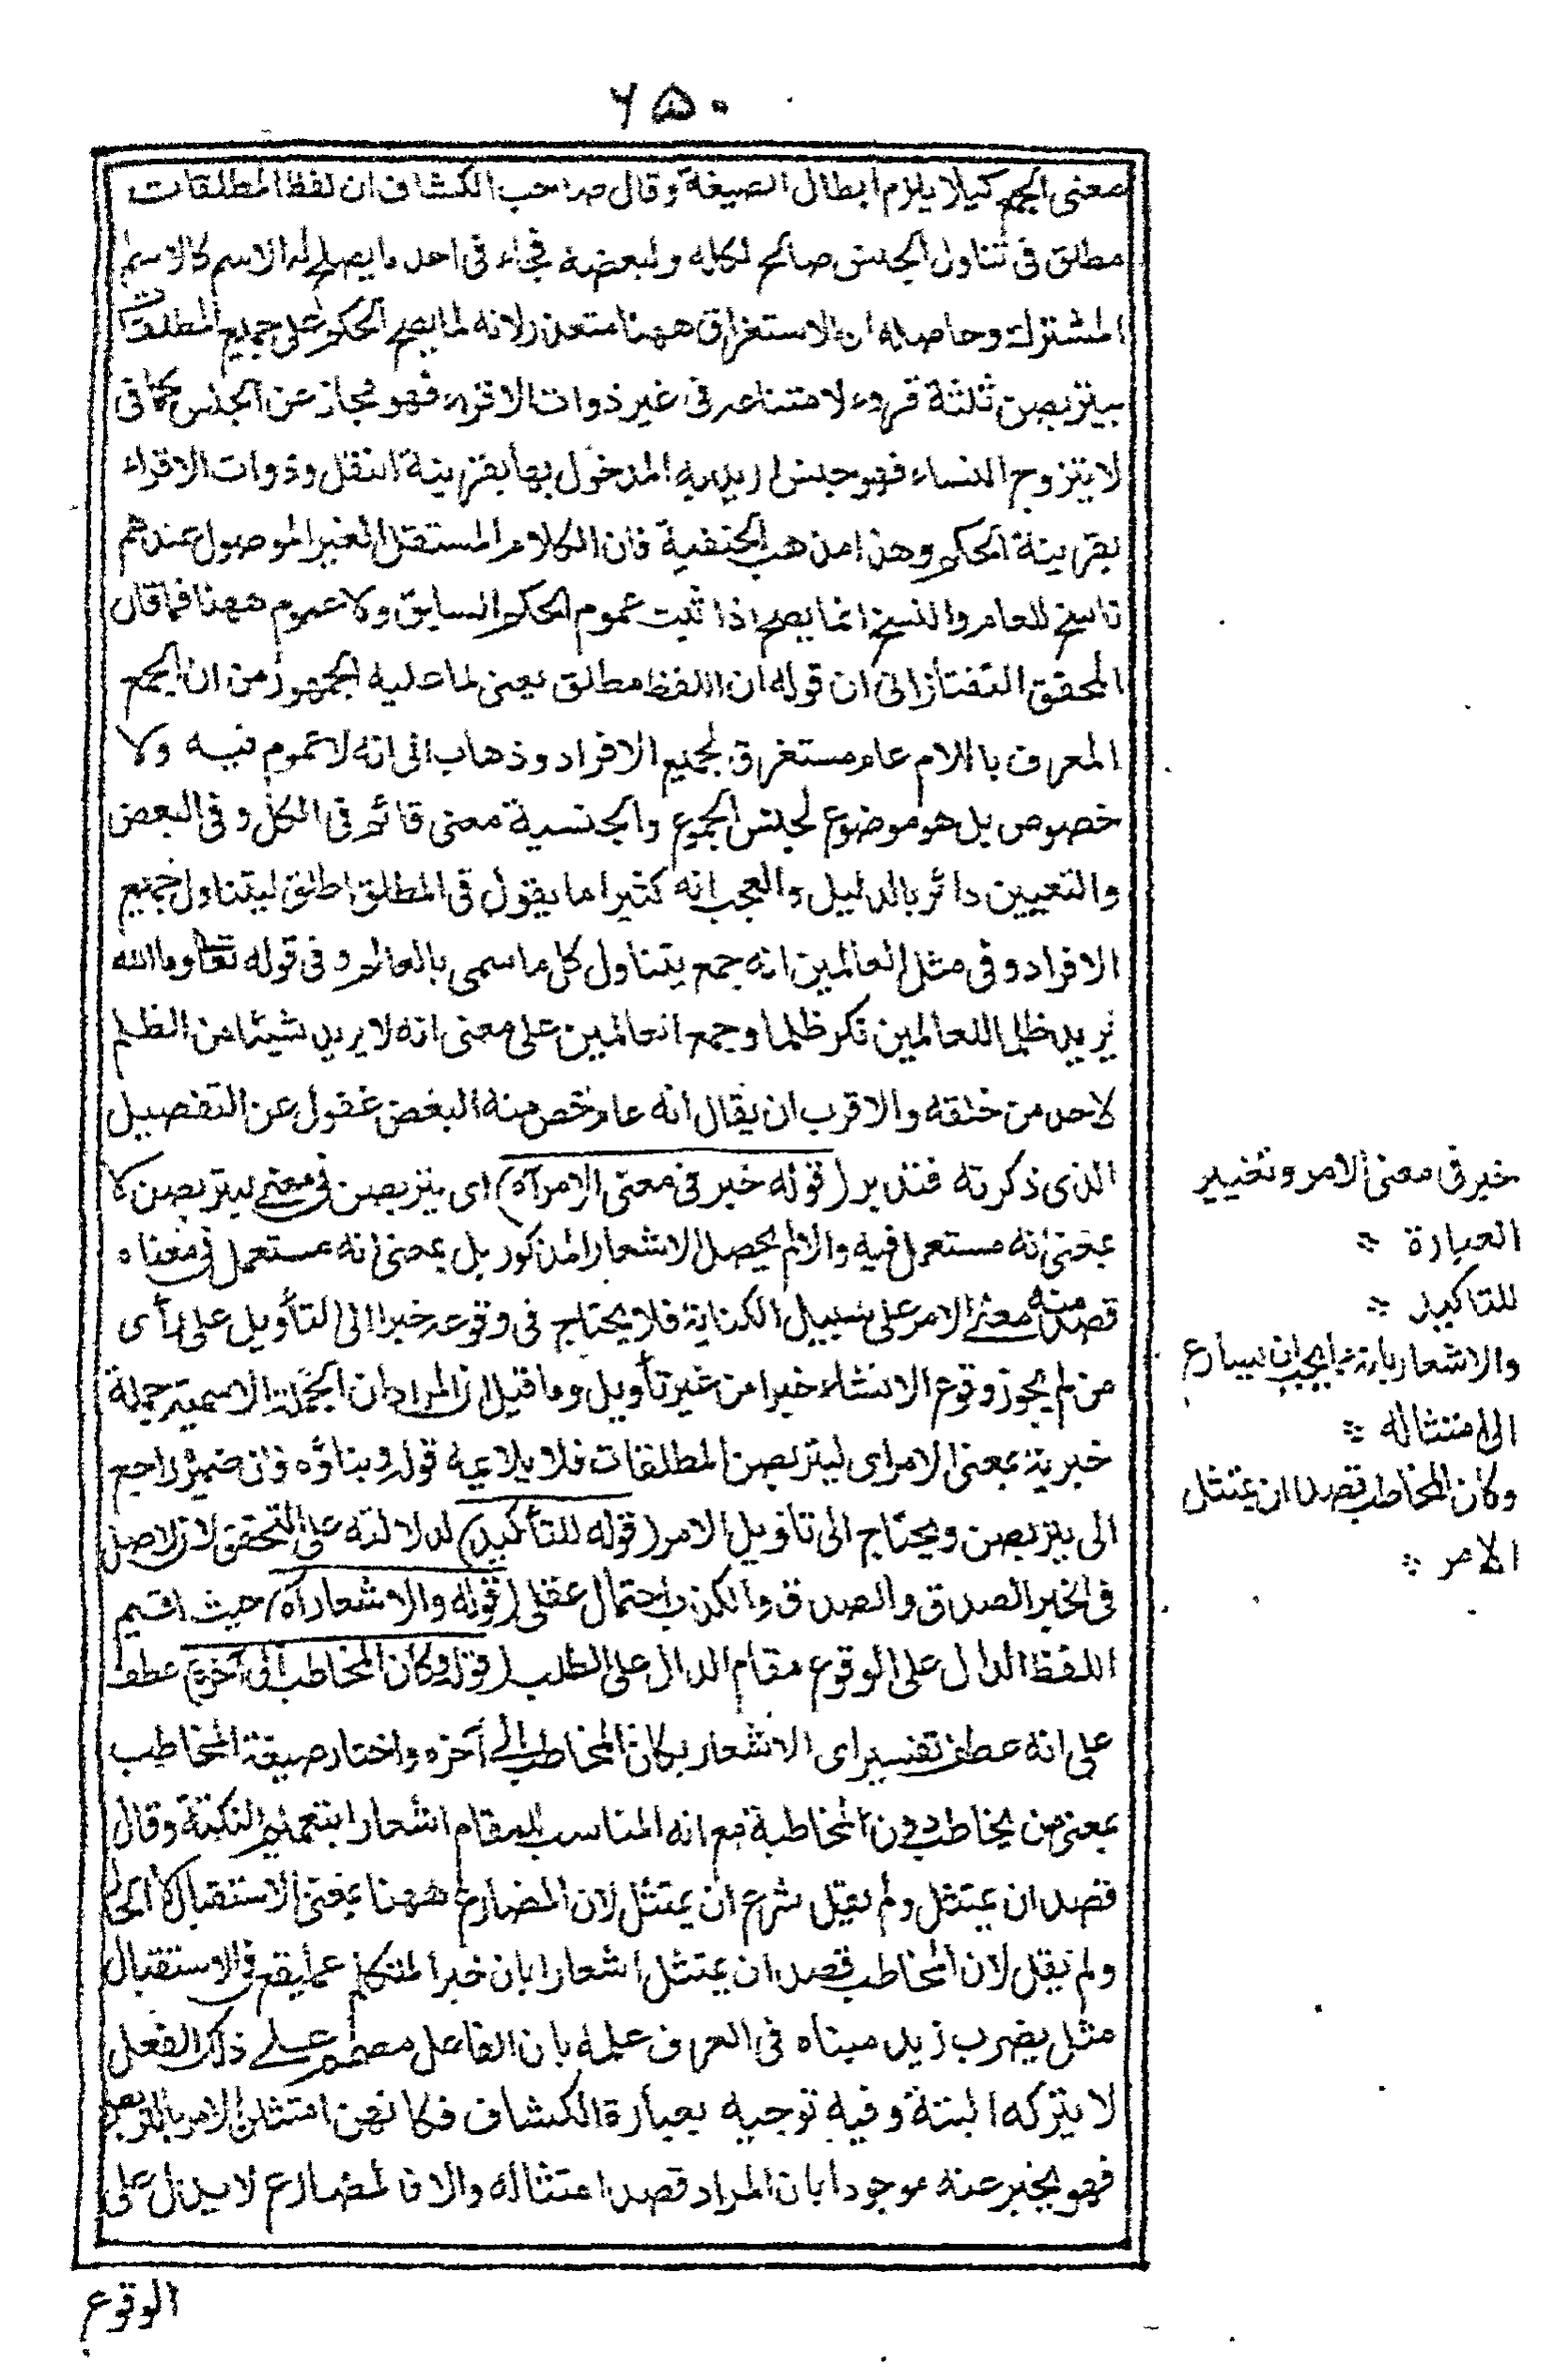 ۶۵۰
معنى الجمع كيلا يلزم ابطال الصيغة وقال صاحب الكشاف ان لفظ المطلقات
مطلق فى تناول الجنس صالح لكله ولبعضه فجاء فى احد ما يصلح له الاسم كالاسم
المشترك وحاصله ان الاستغراق ههنا متعذر لانه لما يصح الحكم على جميع المطلقات
بيتربصن ثلثة قروء لامتناعه فى غير ذوات الاقراء فهو مجاز عن الجنس كما فى
لا يتزوج النساء فهو جنس اريد به المدخول بها بقرينة النقل وذوات الاقراء
بقرينة الحكم وهذا مذهب الحنفية فان الكلام المستقل الغير الموصول عندهم
ناسخ للعام والنسخ انما يصح اذا ثبت عموم الحكم السابق ولا عموم ههنا فما قال
المحقق التفتازانى ان قوله ان اللفظ مطلق يعنى لما عليه الجمهور من ان الجمع
المعرف باللام عام مستغرق لجميع الافراد وذهاب الى انه لا عموم فيه ولا
خصوص بل هو موضوع لجنس الجموع والجنسية معنى قائم فى الكل و فى البعض
والتعيين دائر بالدليل والعجب انه كثيرا ما يقول فى المطلق اطلق ليتناول جميع
الافراد و فى مثل العالمين انه جمع يتناول كل ما سمى بالعالم و فى قوله تعا وما الله
يريد ظلما للعالمين نكر ظلما وجمع العالمين على معنى انه لا يريد شيئا من الظلم
لاحد من خلقه والاقرب ان يقال انه عام خص منه البعض غفول عن التفصيل
الذى ذكرته فتدبر (قوله خبر فى معنى الامر آه) اى يتربصن فى معنى ليتربصن لا
بمعنى انه مستعمل فيه والا لم يحصل الاشعار المذكور بل بمعنى انه مستعمل فى معناه
قصد منه معنى الامر على سبيل الكناية فلا يحتاج فى وقوعه خبرا الى التأويل على رأى
من لم يجوز وقوع الانشاء خبرا من غير تأويل وما قيل ان المراد ان الجملة الاسمية جملة
خبرية بمعنى الامر اى ليتربصن المطلقات فلا يلايمه قوله وبناؤه فان ضميره راجع
الى يتربصن ويحتاج الى تاويل الامر (قوله للتأكيد) لدلالته على التحقق لان الاصل
فى الخبر الصدق والصدق والكذب احتمال عقلى (قوله والاشعار آه) حيث اقيم
اللفظ الدال على الوقوع مقام الدال على الطلب (قوله وكان المخاطب الى آخره) عطف
على انه عطف تفسير اى الاشعار بكان المخاطب الى آخره واختار صيغة المخاطب
بمعنى من يخاطب دون المخاطبة مع انه المناسب للمقام اشعارا بتعميم النكتة وقال
قصد ان يمتثل ولم يقل شرع ان يمتثل لان المضارع ههنا بمعنى الاستقبال لا الحال
ولم يقل لان المخاطب قصد ان يمتثل اشعارا بان خبر المتكلم عما يقع فى الاستقبال
مثل يضرب زيد مبناه فى العرف علمه بان الفاعل مصمم على ذلك الفعل
لا يتركه البتة وفيه توجيه لعبارة الكشاف فكانهن امتثلن الامر بالتربص
فهو يخبر عنه موجودا بان المراد قصد امتثاله والا فالمضارع لا يدل على
الوقوع
خبر فى معنى الامر وتغيير
العبارة ؞
للتاكيد ؞
والاشعار بانه مما يجب ان يسارع
الى امتثاله ؞
وكان المخاطب قصد ان يمتثل
الامر ؞